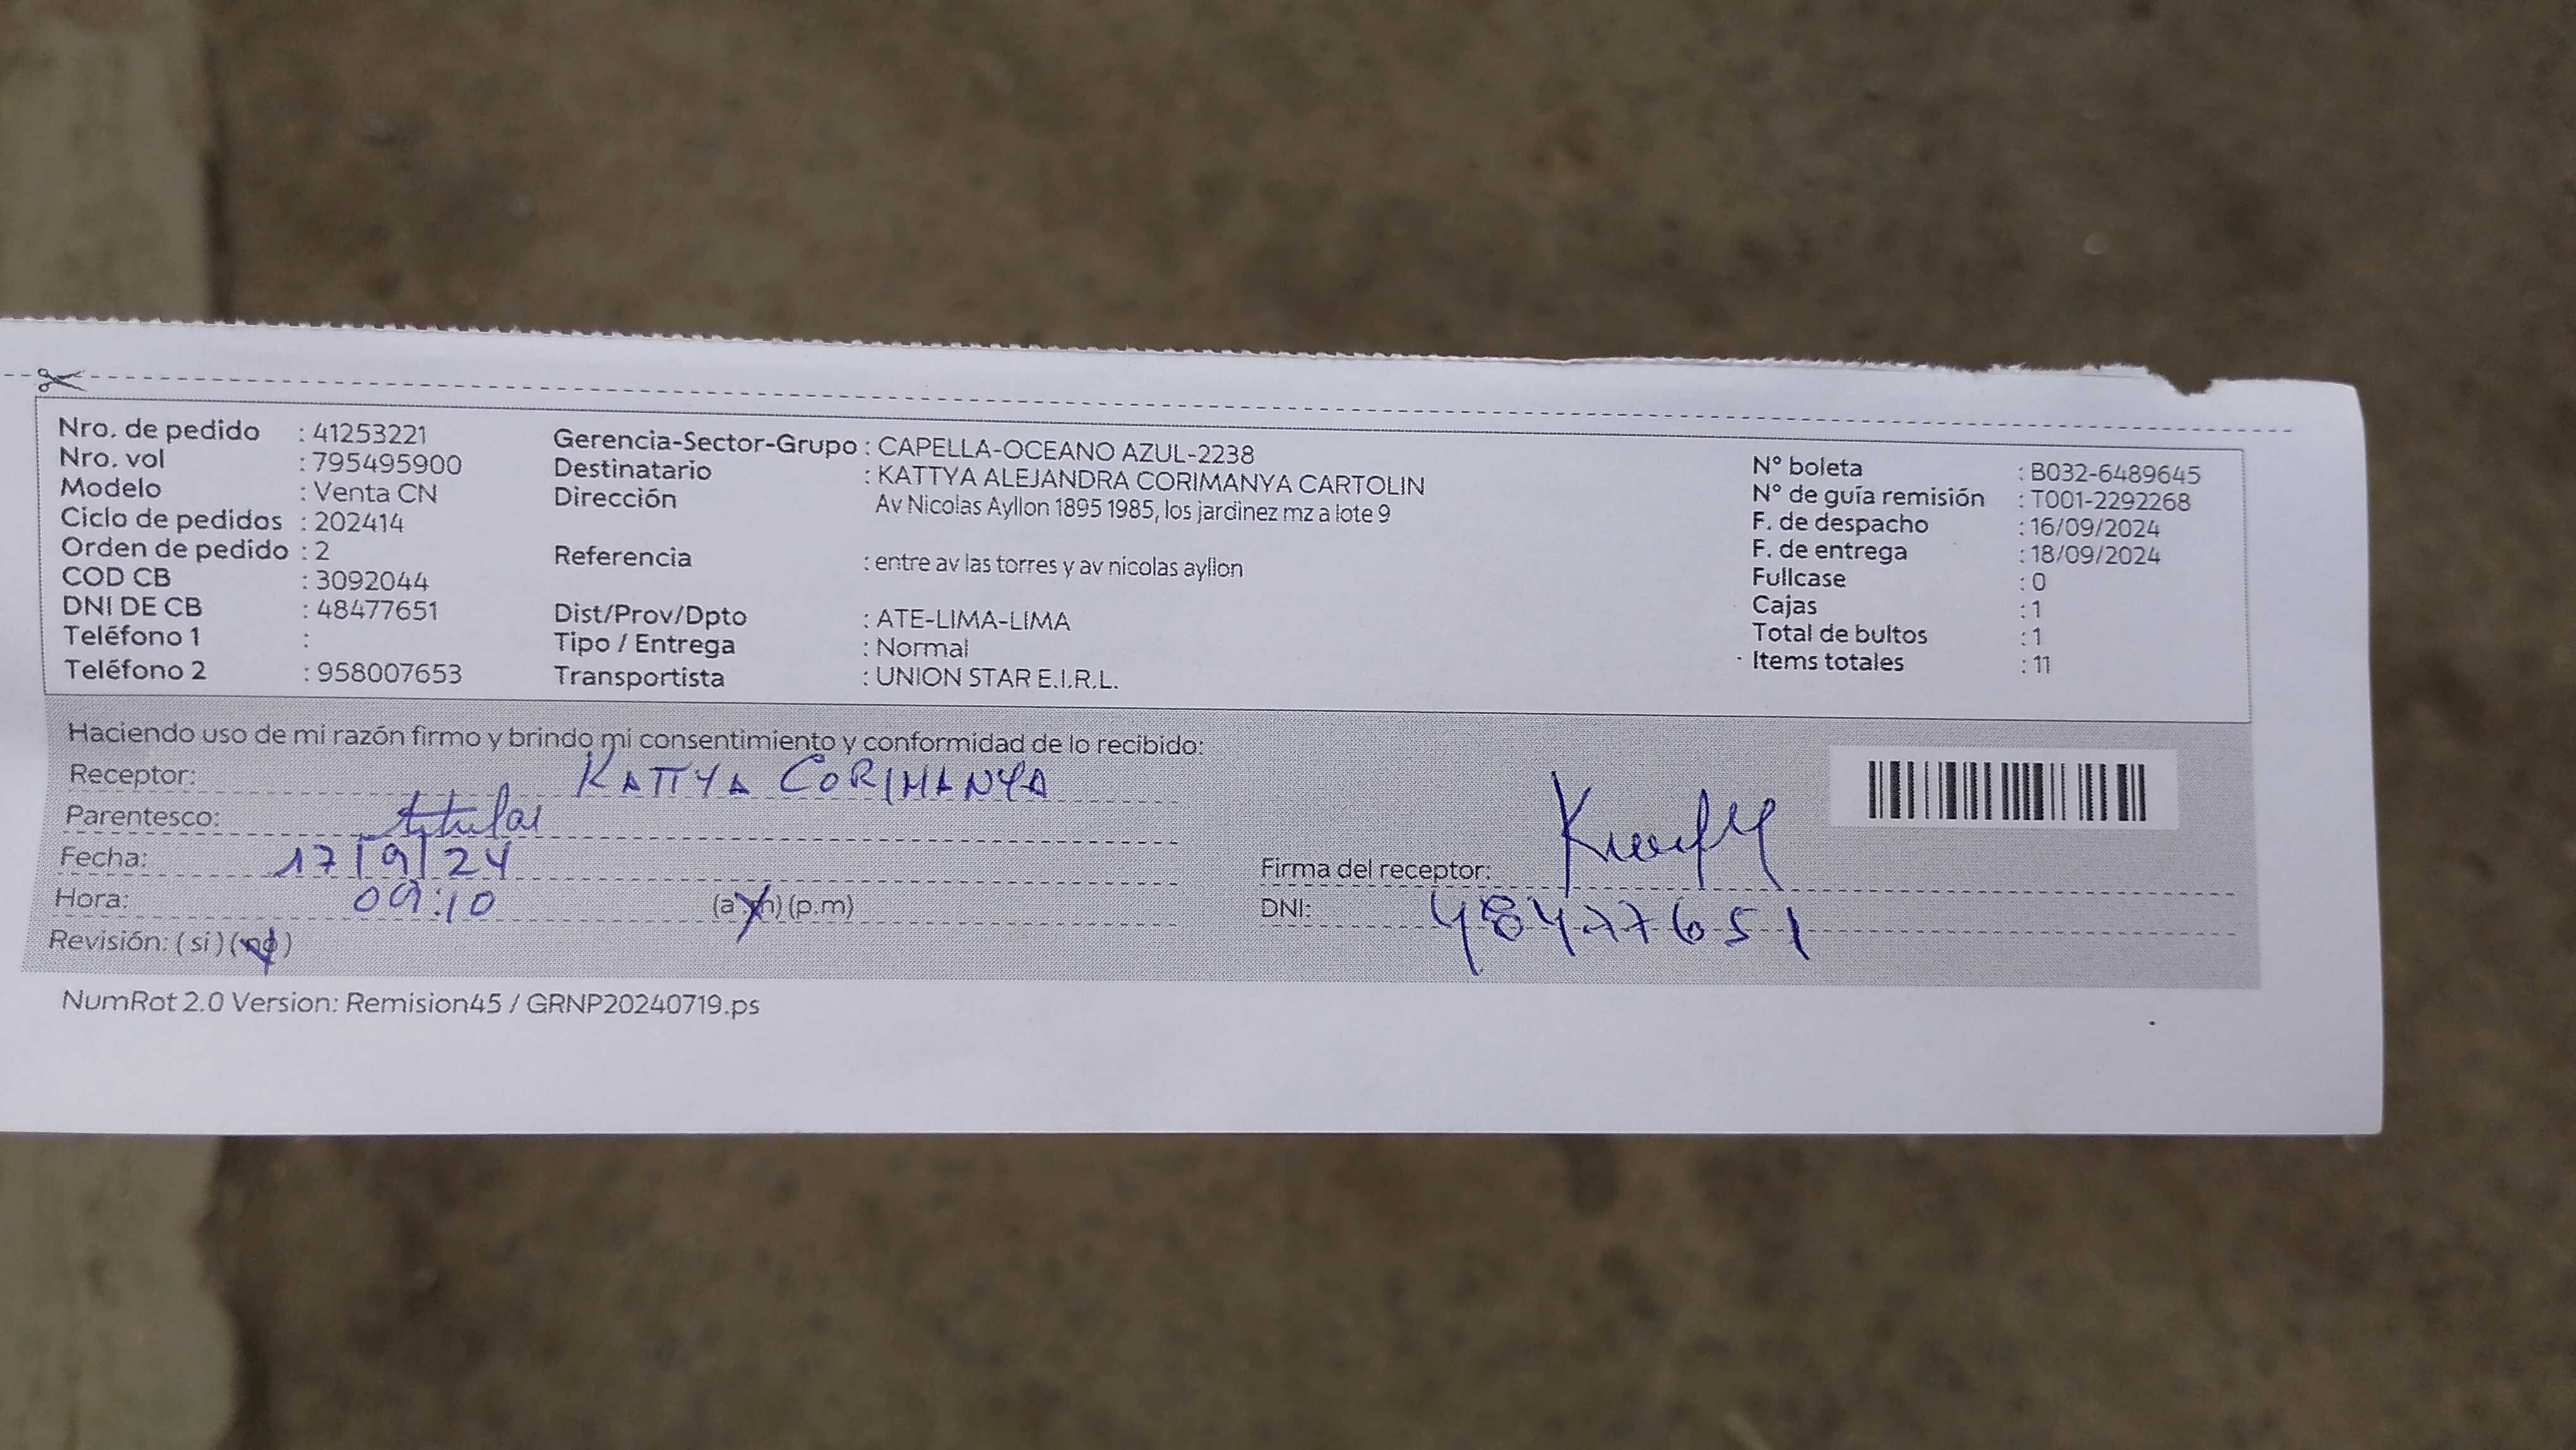 Nro. de pedido : 41253221
Nro. vol : 795495900
Modelo : Venta CN
Ciclo de pedidos : 202414
Orden de pedido : 2
COD CB : 3092044
DNI DE CB : 48477651
Teléfono 1 :
Teléfono 2 : 958007653
Gerencia-Sector-Grupo : CAPELLA-OCEANO AZUL-2238
Destinatario : KATTYA ALEJANDRA CORIMANYA CARTOLIN
Dirección Av Nicolas Ayllon 1895 1985, los jardinez mz a lote 9
Referencia : entre av las torres y av nicolas ayllon
Dist/Prov/Dpto : ATE-LIMA-LIMA
Tipo / Entrega : Normal
Transportista : UNION STAR E.I.R.L.
N° boleta : B032-6489645
N° de guía remisión : T001-2292268
F. de despacho : 16/09/2024
F. de entrega : 18/09/2024
Fullcase : 0
Cajas : 1
Total de bultos : 1
Items totales : 11
Haciendo uso de mi razón firmo y brindo mi consentimiento y conformidad de lo recibido:
Receptor: KATTYA CORIMANYA
Parentesco: titular
Fecha: 17/9/24
Hora: 09:10 (a.m) (p.m)
Revisión: ( si ) ( no )
Firma del receptor:
DNI: 48477651
NumRot 2.0 Version: Remision45 / GRNP20240719.ps